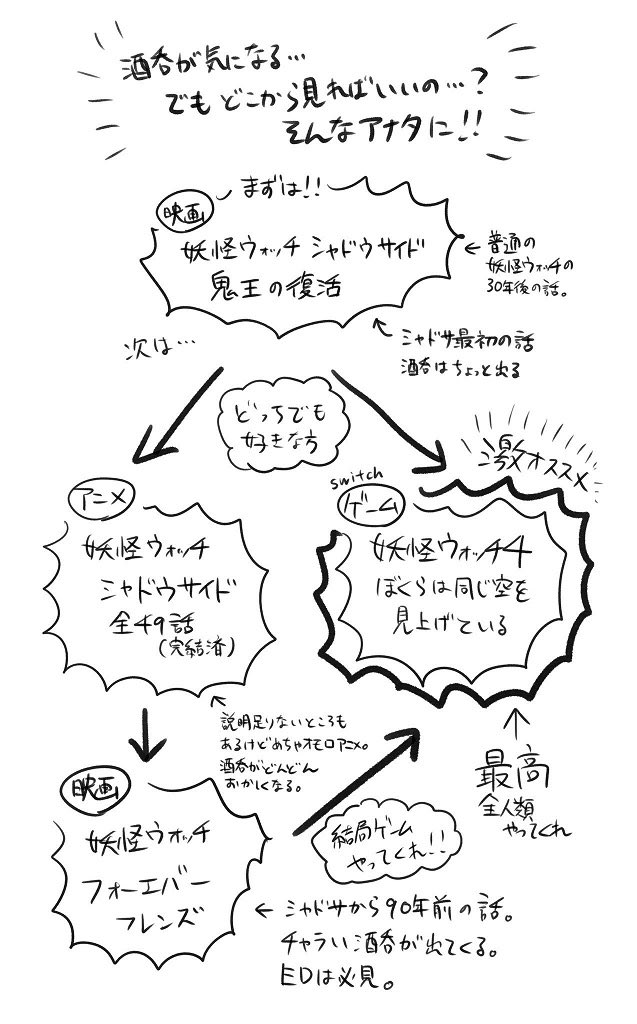 酒呑が気になる…
でもどこから見ればいいの…?
そんなアナタに!!
まずは!!
映画
妖怪ウォッチ シャドウサイド
鬼王の復活
普通の
妖怪ウォッチの
30年後の話。
シャドサ最初の話
酒呑はちょっと出る
次は…
どっちでも
好きな方
アニメ
妖怪ウォッチ
シャドウサイド
全49話
(完結済)
説明足りないところも
あるけどめちゃオモロアニメ。
酒呑がどんどん
おかしくなる。
激オススメ
switch
ゲーム
妖怪ウォッチ4
ぼくらは同じ空を
見上げている
最高
全人類
やってくれ
映画
妖怪ウォッチ
フォーエバー
フレンズ
結局ゲーム
やってくれ!!
シャドサから90年前の話。
チャラい酒呑が出てくる。
EDは必見。